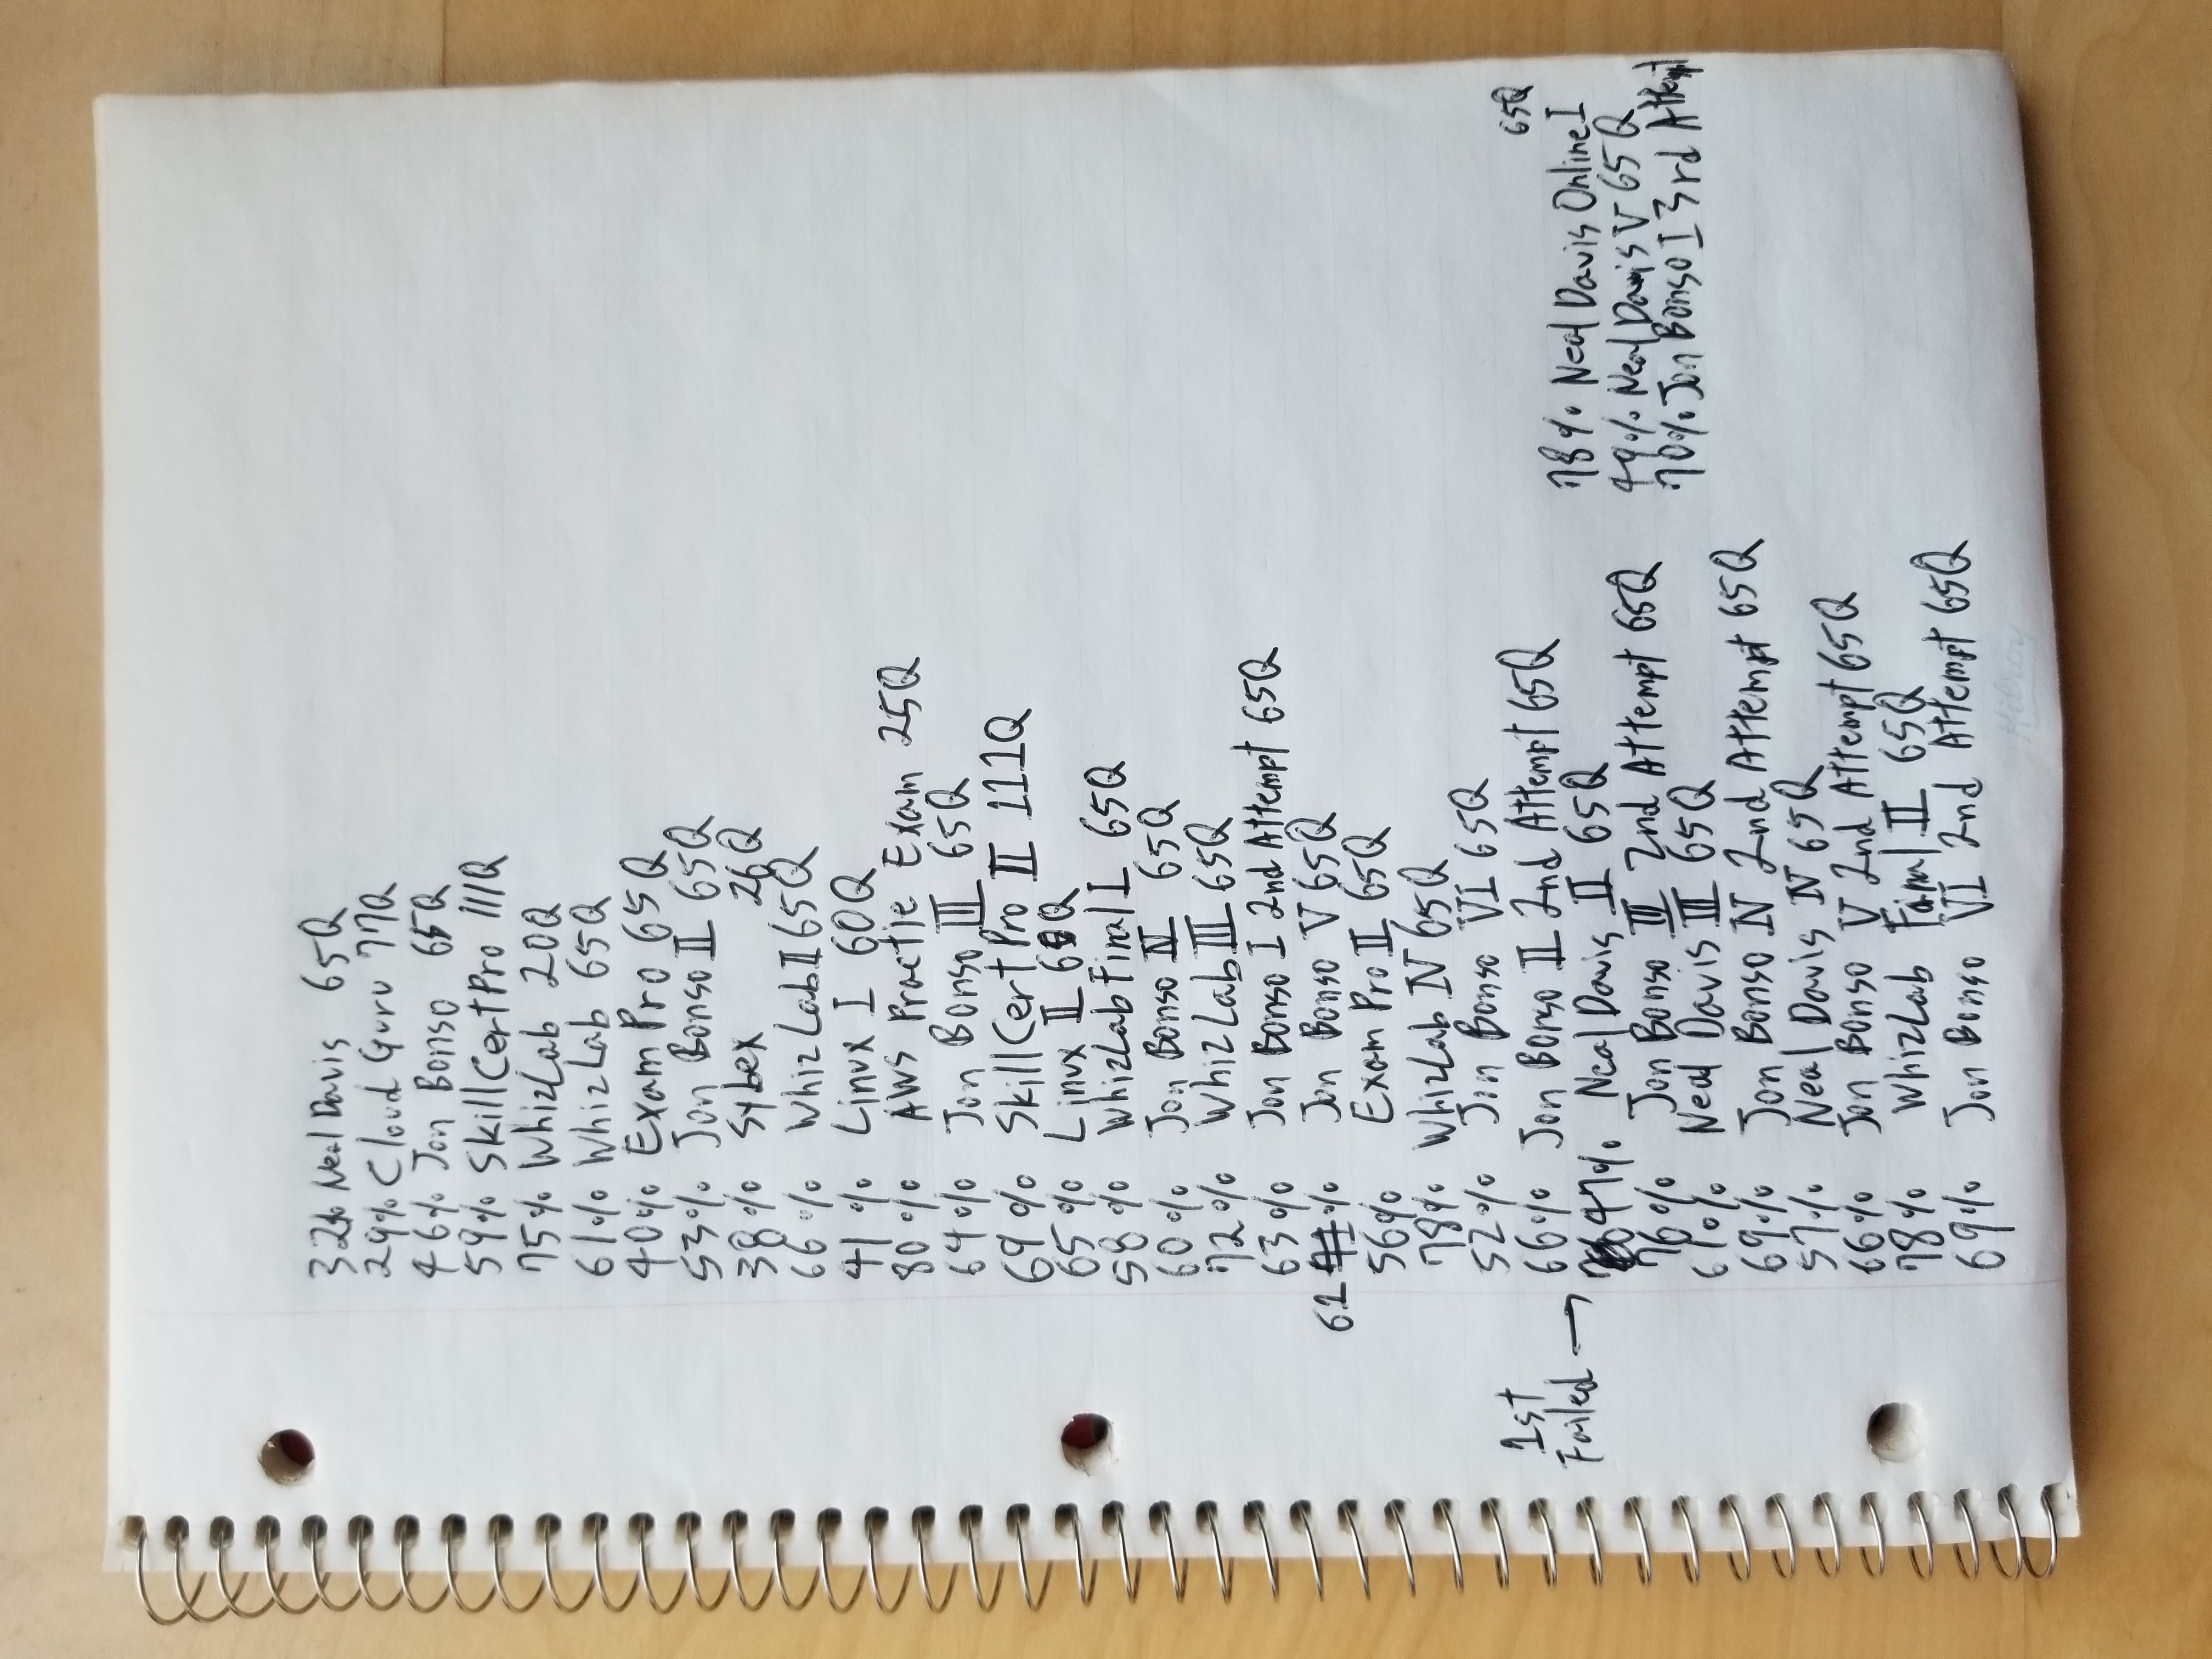 32% Neal Davis 65Q
29% Cloud Guru 77Q
46% Jon Bonso 65Q
59% SkillCertPro 111Q
75% WhizLab 20Q
61% WhizLab 65Q
40% Exam Pro 65Q
53% Jon Bonso II 65Q
38% Sybex 26Q
66% WhizLab II 65Q
41% Linux I 60Q
80% AWS Practie Exam 25Q
64% Jon Bonso III 65Q
69% SkillCertPro II 111Q
65% Linux II Q
58% WhizLab Final I 65Q
60% Jon Bonso IV 65Q
72% WhizLab III 65Q
63% Jon Bonso I 2nd Attempt 65Q
62 % Jon Bonso V 65Q
56% Exam Pro II 65Q
78% WhizLab IV 65Q
52% Jon Bonso VI 65Q
66% Jon Bonso II 2nd Attempt 65Q
1st
Failed → 47% Neal Davis II 65Q
76% Jon Bonso III 2nd Attempt 65Q
67% Neal Davis III 65Q
69% Jon Bonso IV 2nd Attempt 65Q
57% Neal Davis IV 65Q
66% Jon Bonso V 2nd Attempt 65Q
78% WhizLab Final II 65Q
69% Jon Bonso VI 2nd Attempt 65Q
65Q
78% Neal Davis Online I
49% Neal Davis V 65Q
70% Jon Bonso I 3rd Attempt